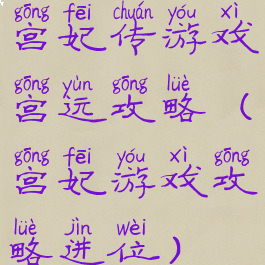 gōng fēi chuán yóu xì
宫妃传游戏
gōng yùn gōng lüè
宫运攻略（
gōng fēi yóu xì gōng
宫妃游戏攻
lüè jìn wèi
略进位）